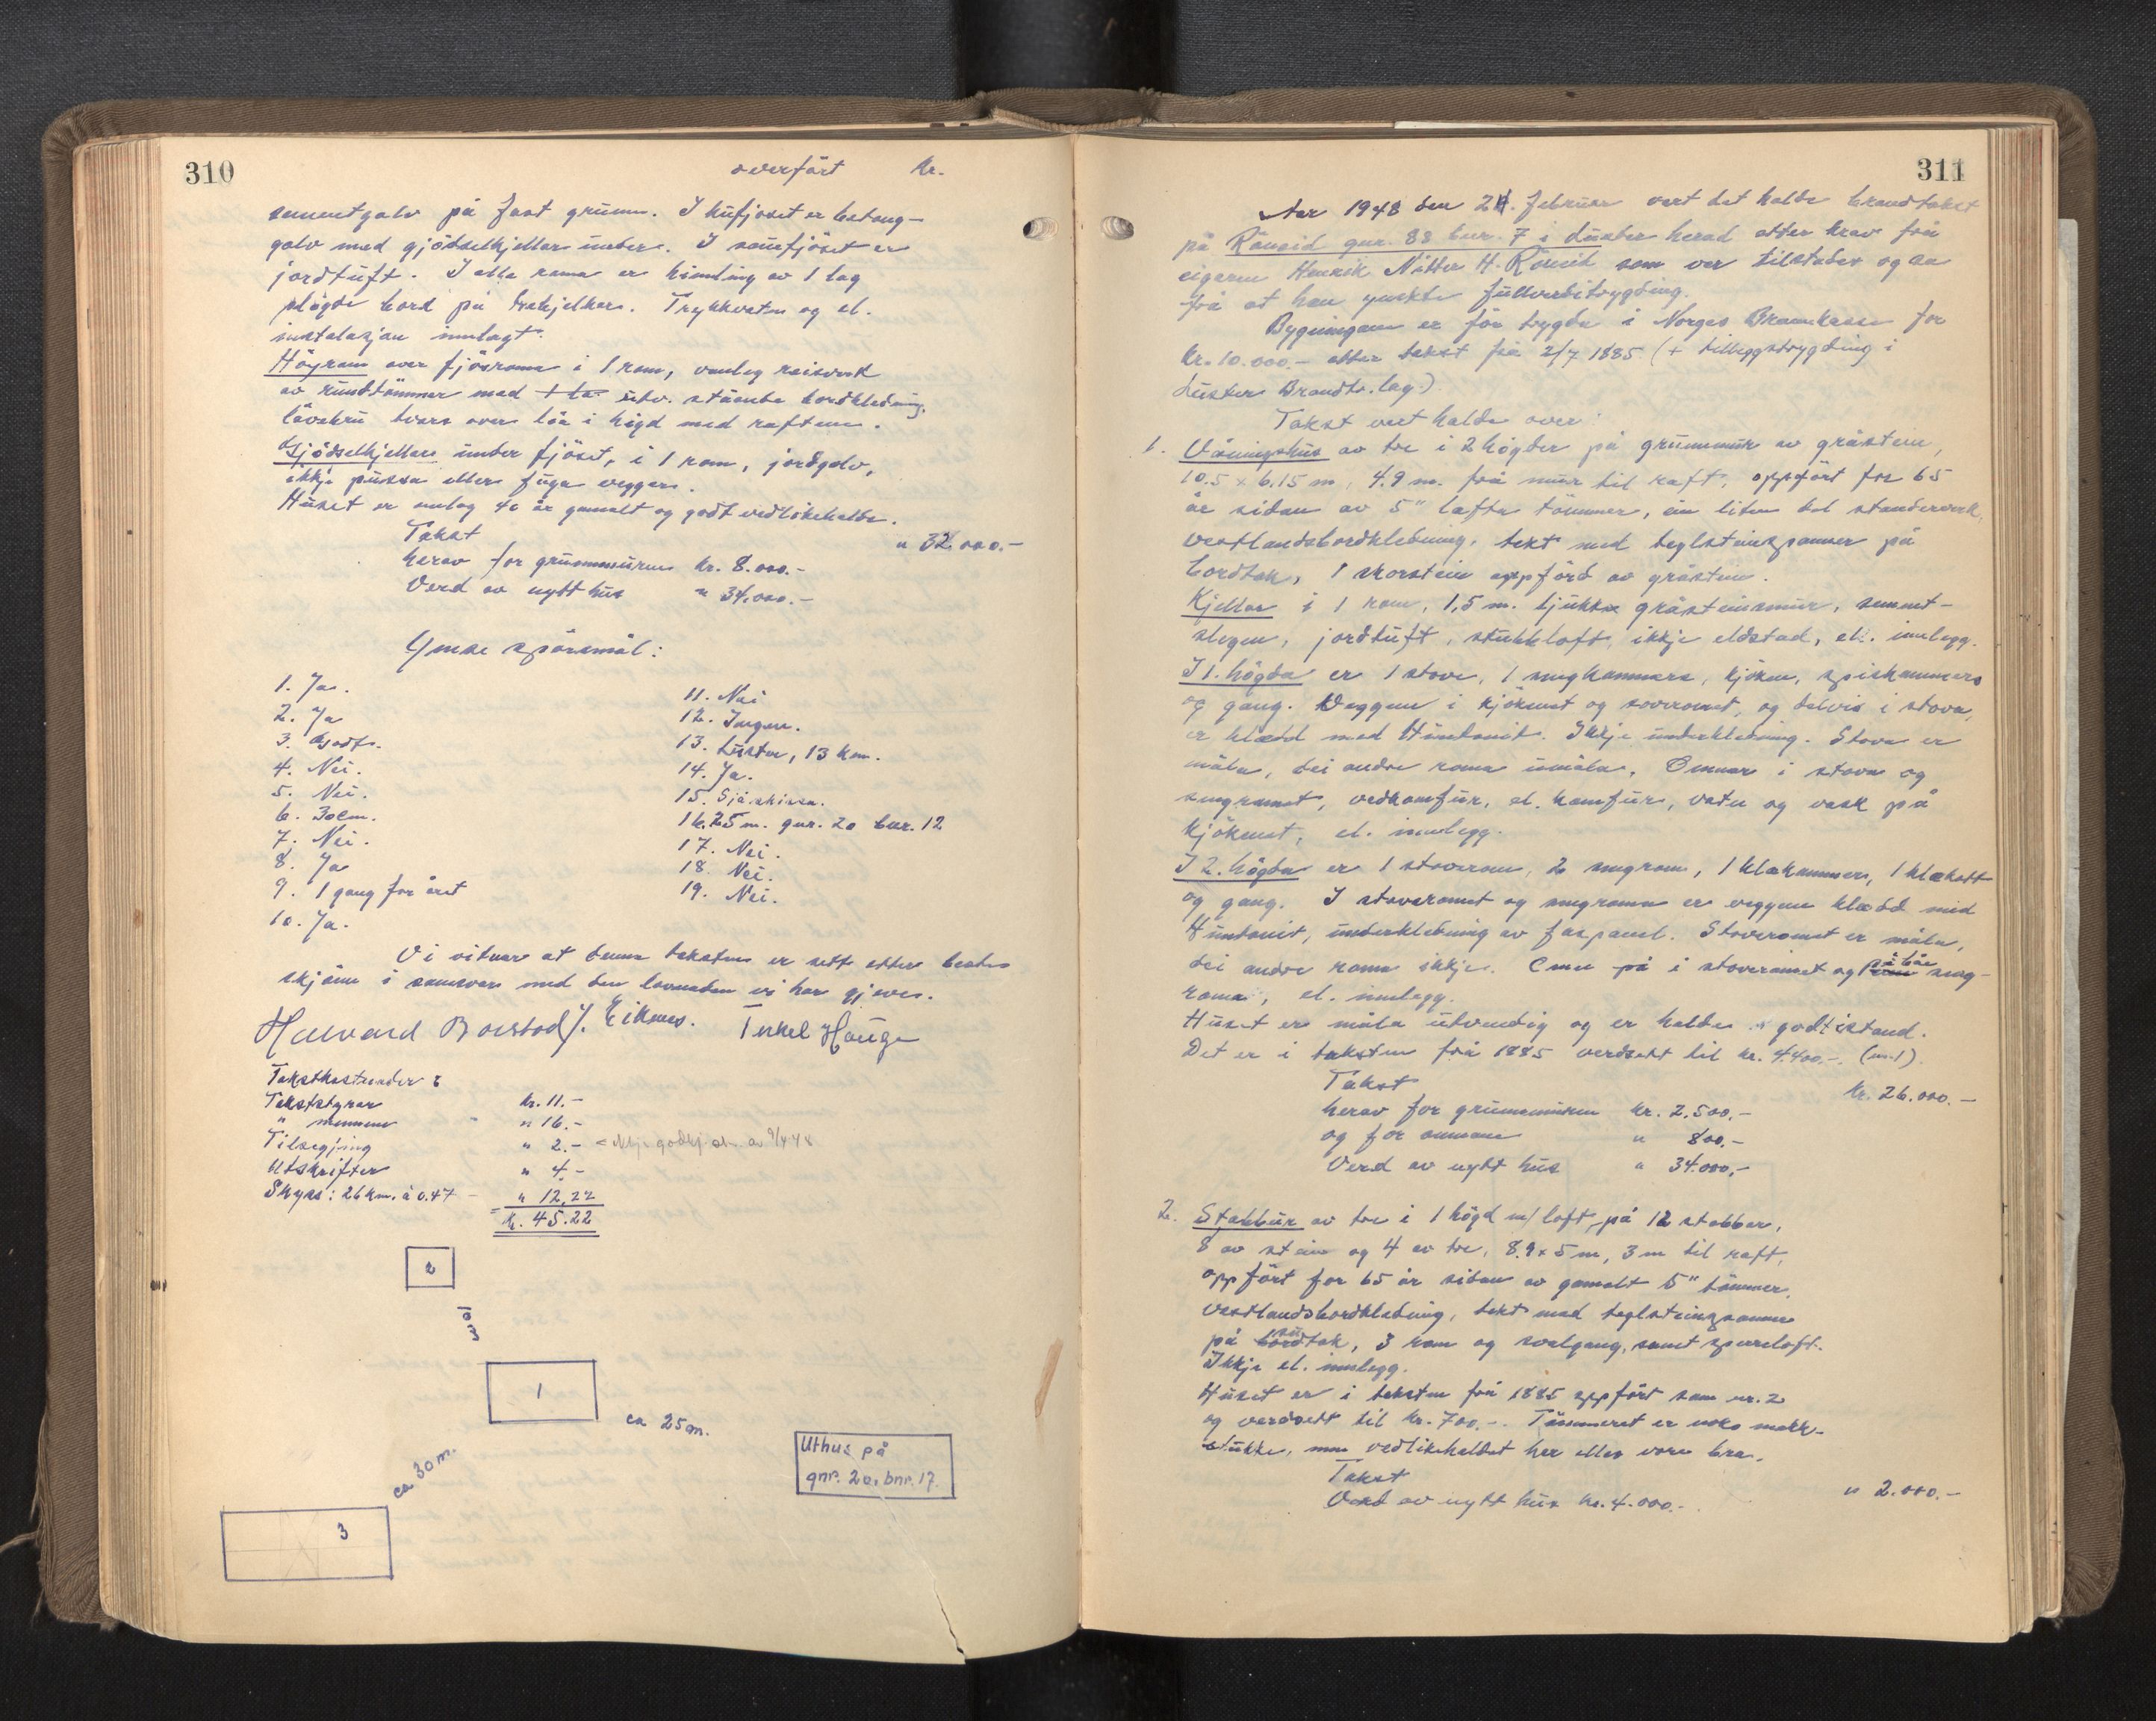 310
overført kr.
sementgolv på fast grunn. I kufjøset er betong-
golv med gjødselkjellar under. I sauefjøset er
jordtuft. I alle roma er himling av 1 lag
pløgde bord på trebjelkar. Trykkvatn og el.
instalasjon innlagt.
Høyrom over fjøsroma i 1 rom, vanleg reisverk
av rundtømmer med utv. ståande bordkledning,
låvebru tvers over løa i høgd med raftene.
Gjødselkjellar under fjøset, i 1 rom, jordgolv,
ikkje pussa eller fuga vegger.
Huset er umlag 40 år gamalt og godt vedlikehalde.
Takst " 32.000.-
herav for grunnmuren kr. 8.000.-
Verd av nytt hus " 34.000.-
Ymse spørsmål:
1. Ja.
2. Ja
3. Godt.
4. Nei.
5. Nei.
6. 30 cm.
7. Nei.
8. Ja
9. 1 gang for året
10. Ja.
11. Nei
12. Ingen.
13. Luster, 13 km.
14. Ja.
15. Sjå skissa.
16. 25 m. gnr. 20 bnr. 12
17. Nei.
18. Nei.
19. Nei.
Vi vitnar at denne taksten er sett etter beste
skjøn i samsvar med den lovnaden vi har gjeve.
Halvard Borstad J. Eiknes. Terkel Hauge
Takstkostnader:
Takststyrar kr. 11.-
" mennene " 16.-
Tilsegjing " 2.-
Utskrifter " 4.-
Skyss: 26 km. à 0.47 " 12,22
= kr. 45.22
2
1
ca 25 m.
Uthus på
gnr. 20, bnr. 17.
ca 30 m.
3
311
År 1948 den 24. februar vart det halde brandtakst
på Røneid gnr. 88 bnr. 7 i Luster herad etter krav frå
eigaren Henrik Nitter H. Røneid som var tilstades og sa
frå at han ynskte fullverditrygding.
Bygningane er før trygda i Norges Brannkasse for
kr. 10.000.- etter takst frå 2/7 1885. (+ tilleggstrygding i
Luster Brandtr.lag.)
Takst vart halde over:
1. Våningshus av tre i 2 høgder på grunnmur av gråstein,
10.5 x 6.15 m, 4.9 m. frå mur til raft, oppført for 65
år sidan av 5" lafta tømmer, ein liten del standerverk,
vestlandsbordkledning, tekt med teglsteinspanner på
bordtak, 1 skorstein oppførd av gråstein.
Kjellar i 1 rom, 1,5 m. tjukke gråsteinsmur, sement-
slegen, jordtuft, stubbloft, ikkje eldstad, el. innlegg.
I 1. høgda er 1 stove, 1 sengkammers, kjøken, spiskammers
og gang. Veggene i kjøkenet og soveromet, og delvis i stova,
er klædd med Huntonit. Ikkje underkledning. Stova er
måla, dei andre roma umåla. Omnar i stova og
sengromet, vedkomfur, el. komfur, vatn og vask på
kjøkenet, el. innlegg.
I 2. høgda er 1 stoverom, 2 sengrom, 1 klekammers, 1 klekott
og gang. I stoveromet og sengroma er veggene klædd med
Huntonit, underkledning av faspanel. Stoveromet er måla,
dei andre roma ikkje. Omn på i stoveromet og på båe seng-
roma, el. innlegg.
Huset er måla utvendig og er halde i godt istand.
Det er i taksten frå 1885 verdsett til kr. 4.400.-. (nr. 1)
Takst kr. 26.000.-
herav for grunnmuren kr. 2.500.-
og for omnane " 800.-
Verd av nytt hus " 34.000.-
2. Stabbur av tre i 1 høgd m/ loft, på 12 stabbar,
8 av stein og 4 av tre, 8.9 x 5 m, 3 m til raft,
oppført for 65 år sidan av gamalt 5" tømmer,
vestlandsbordkledning, tekt med teglsteinspanner
på bordtak, 3 rom og svalgang, samt sperreloft.
Ikkje el. innlegg.
Huset er i taksten frå 1885 oppført som nr. 2
og verdsett til kr. 700.-. Tømmeret er noko makk-
stukke, men vedlikehaldet her elles vore bra.
Takst " 2.000.-
Verd av nytt hus kr. 4.000.-